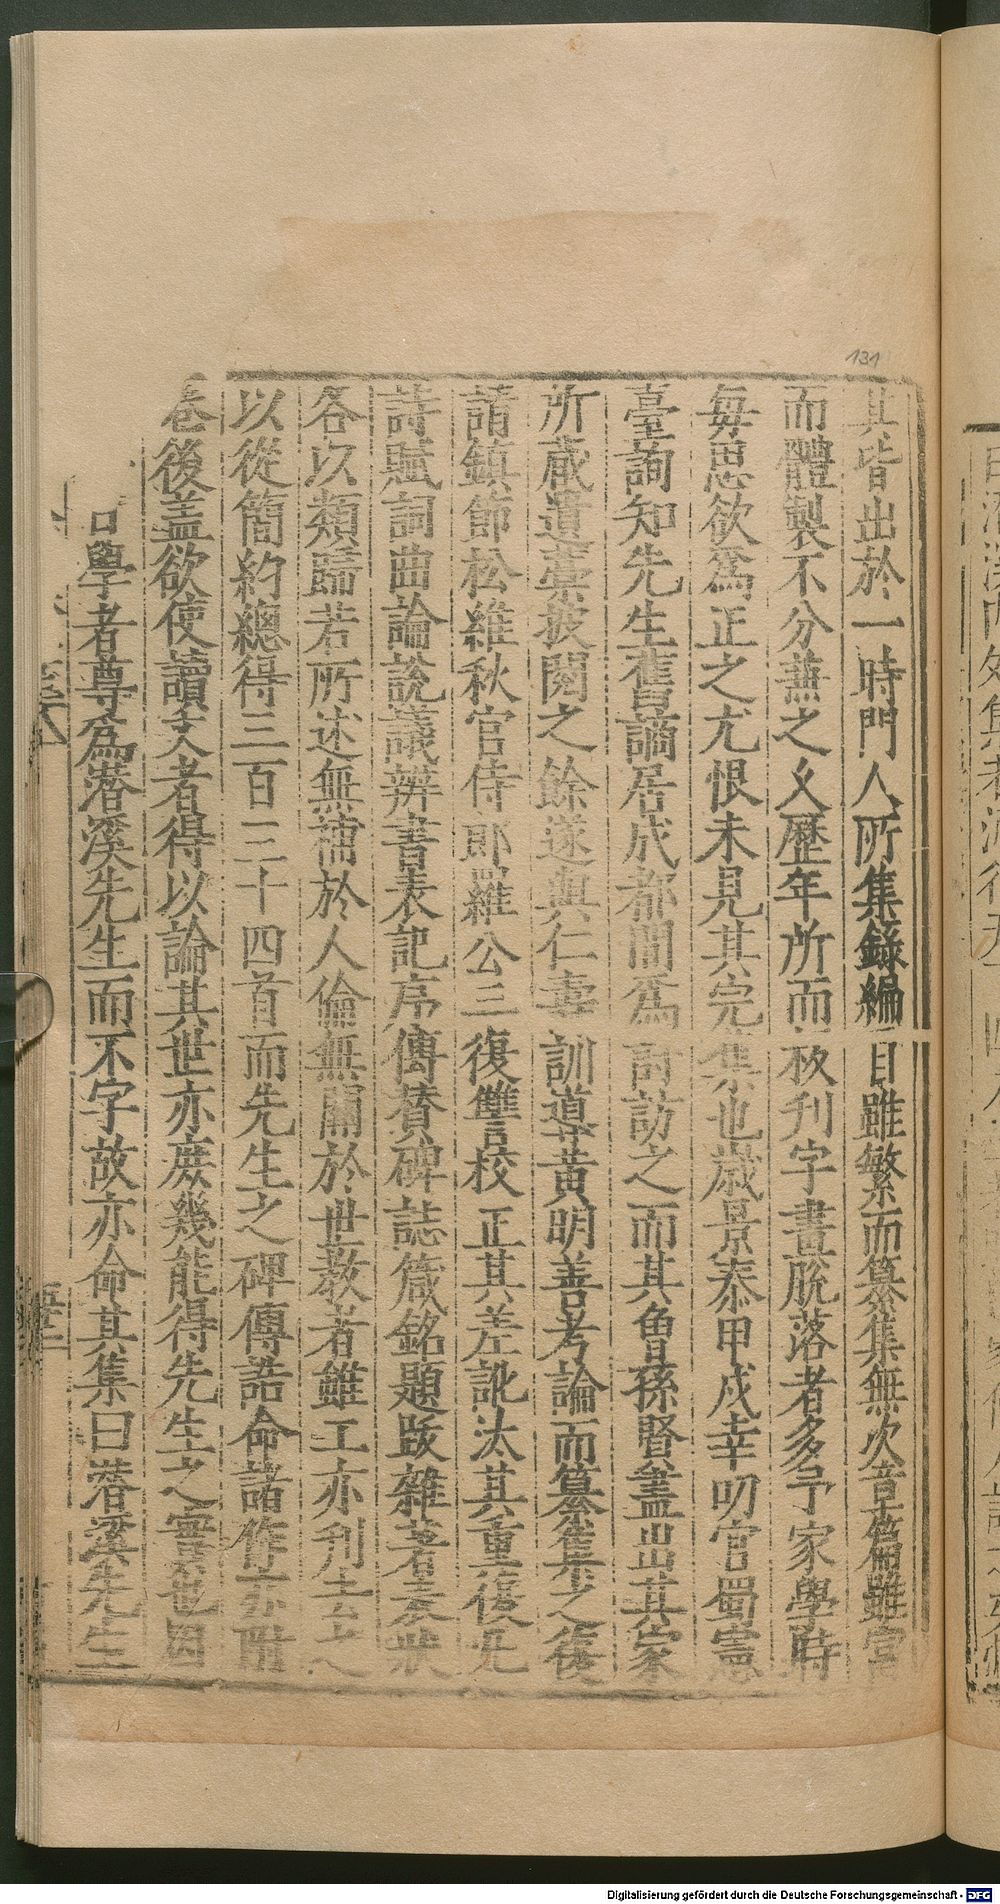 其皆出於一時門人所集錄編目雖繁而纂集無次章篇雖富
而體製不分兼之久歷年所而板刋字畫脫落者多予家學時
每思欲爲正之尤恨未見其完集也歲景泰甲戍幸叨官蜀憲
臺詢知先生舊謫居成都間爲討訪之而其魯孫賢盡出其家
所蔵遺藁披閱之餘遂與仁壽訓導黃明善考論而纂集之復
請鎮節松維秋官侍郎羅公三復讐校正其差訛汰其重復凡
詩賦詞曲論說議辨書表記序傳賛碑誌箴銘題跋雜著奏狀
各以類歸若所述無補於人倫無關於世教者雖工亦刋去之
以從簡約總得三百三十四首而先生之碑傳誥命諸作亦附
卷後盖欲使讀文者得以論其世亦庶幾能得先生之實也因
學者尊爲潜溪先生而不字故亦命其集曰潜溪先生
131
Digitalisierung gefördert durch die Deutsche Forschungsgemeinschaft - DFG